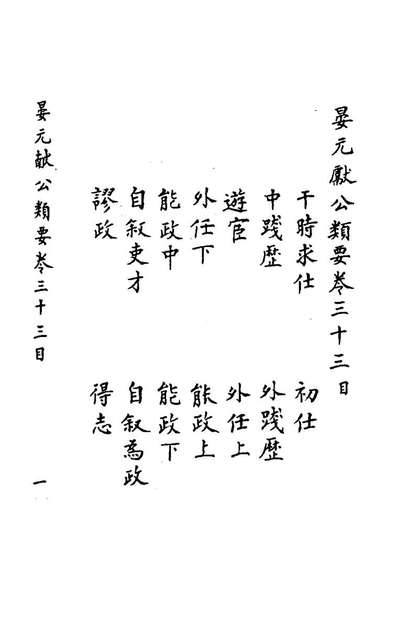 晏元獻公類要卷三十三目
干時求仕　初仕
中踐歷　外踐歷
遊宦　外任上
外任下　能政上
能政中　能政下
自叙吏才　自叙為政
謬政　得志
晏元献公類要卷三十三目　一